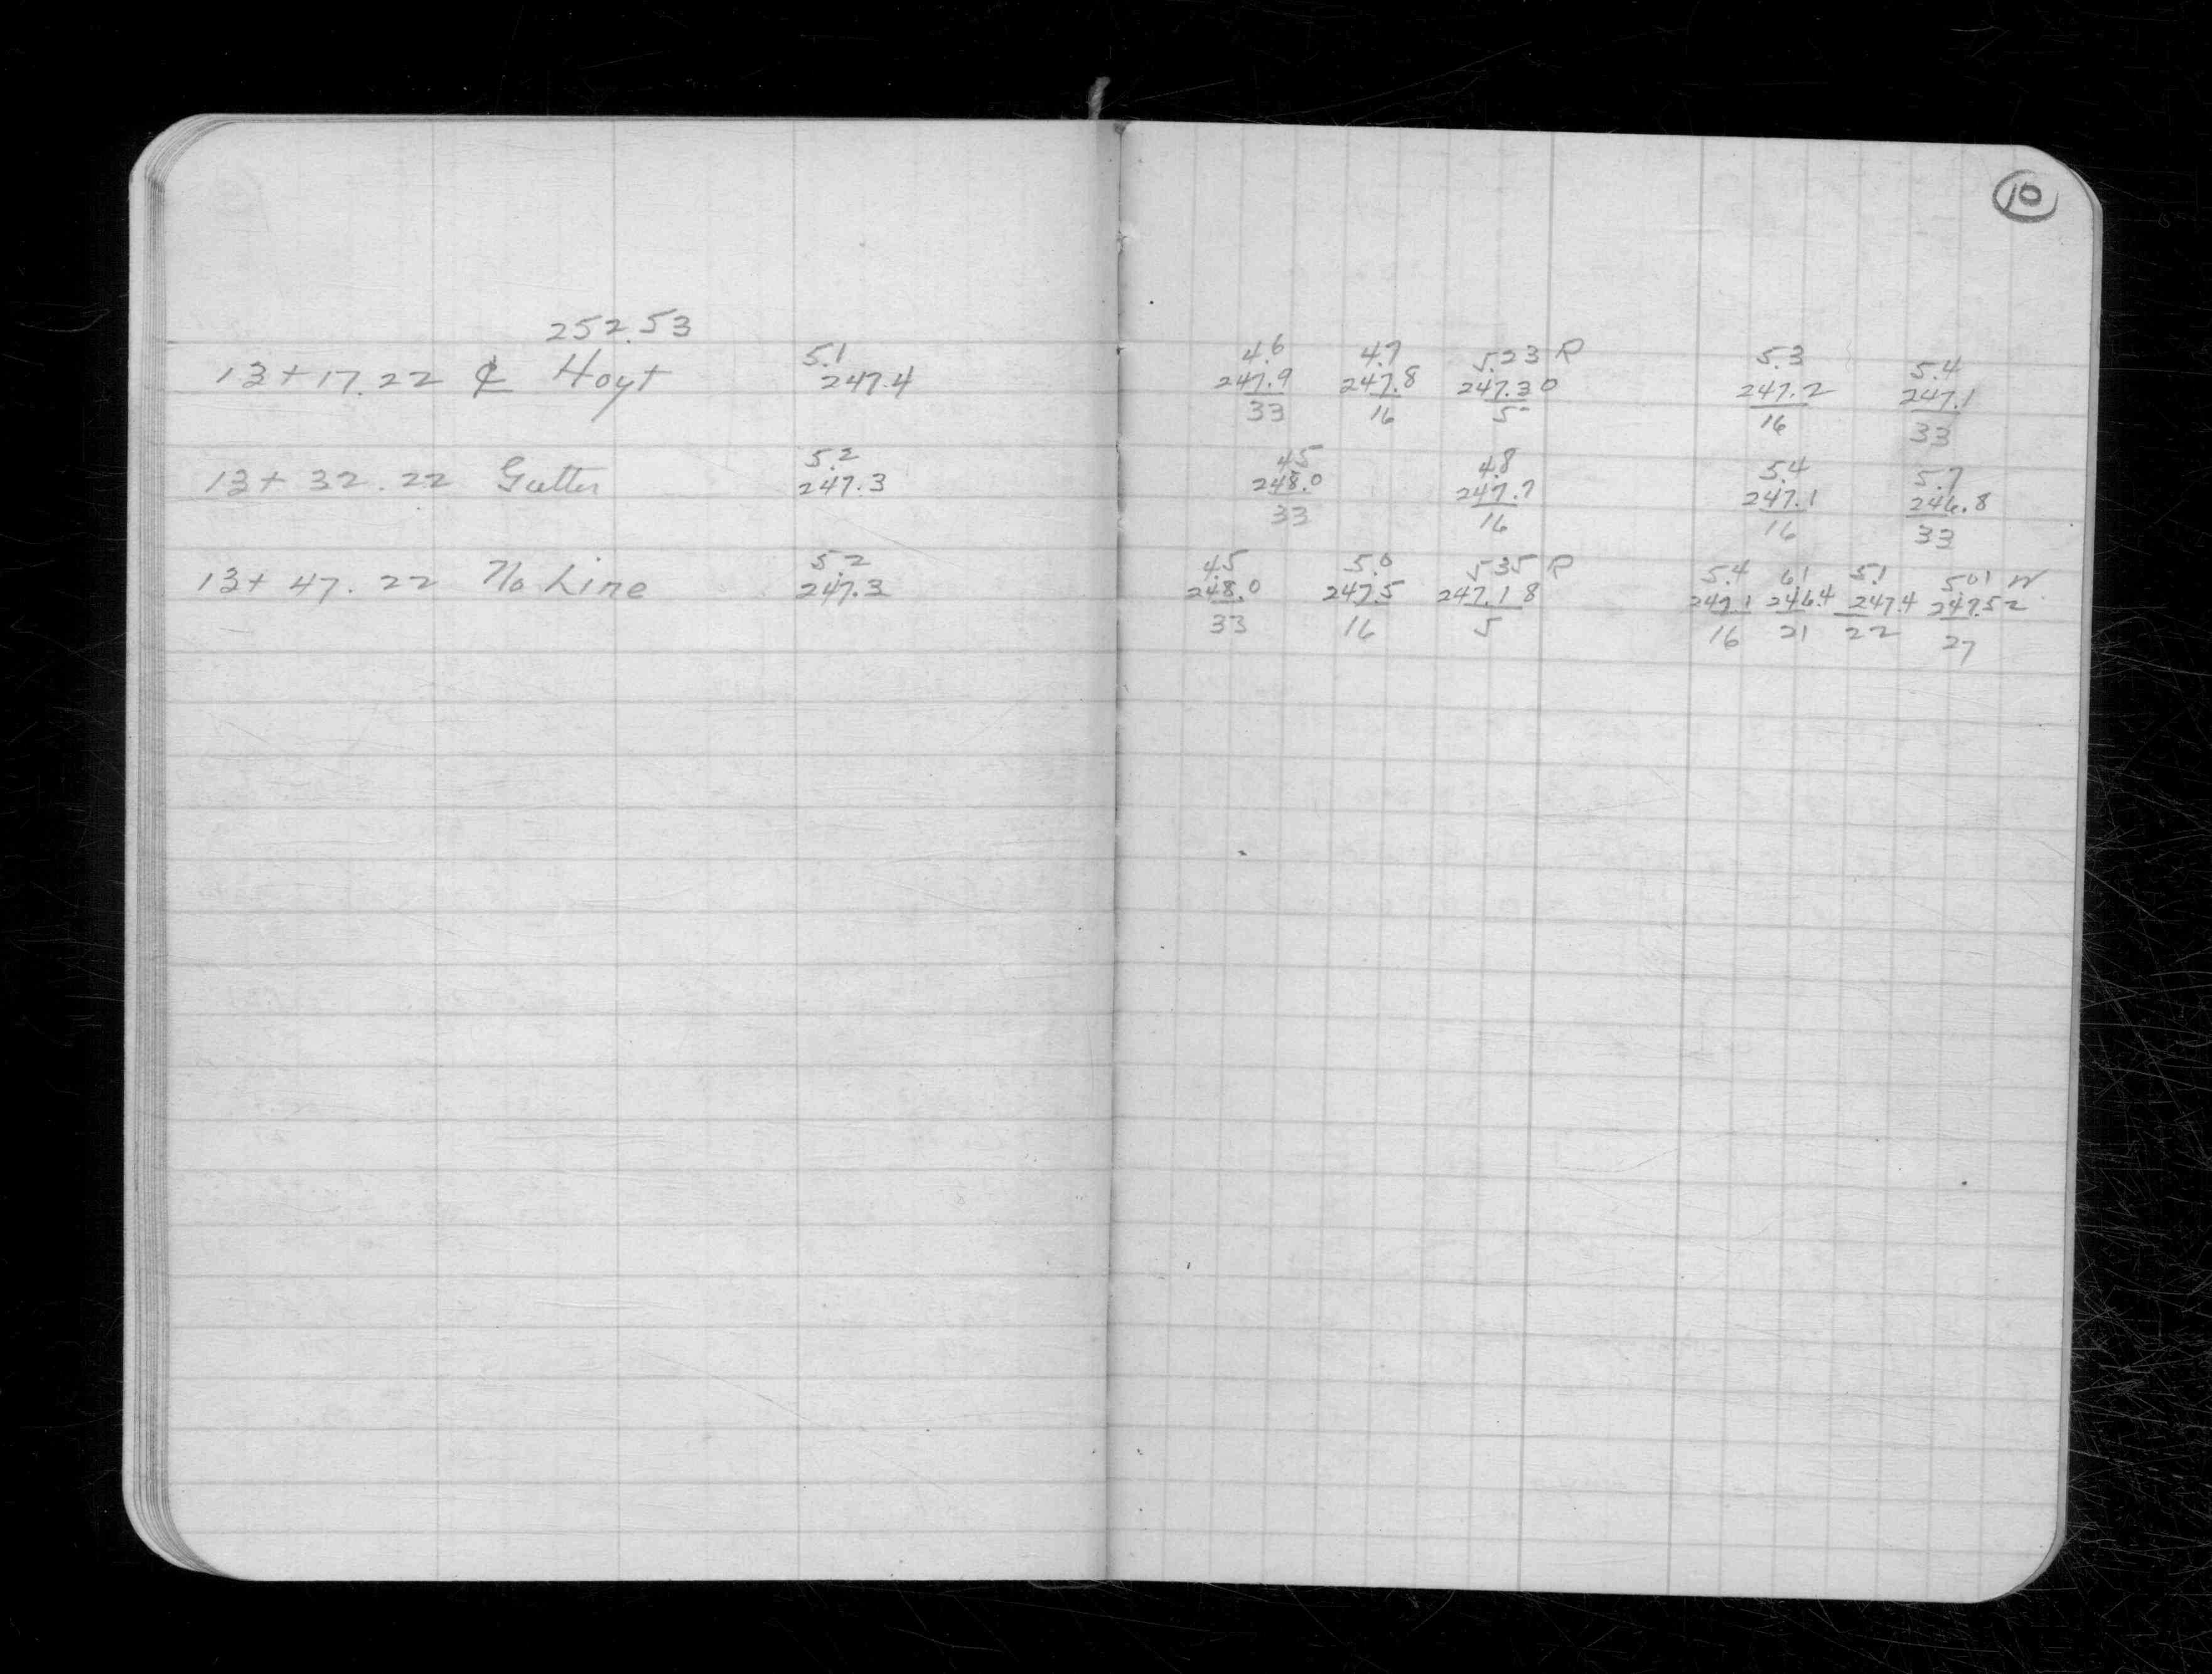 10
252.53
5.1 4.6 4.7 5.23 R 5.3 5.4
13+17.22 ₵ Hoyt 247.4 247.9 247.8 247.30 247.2 247.1
33 16 5 16 33
5.2 4.5 4.8 5.4 5.7
13+32.22 Gutter 247.3 248.0 247.7 247.1 246.8
33 16 16 33
5.2 4.5 5.0 5.35 R 5.4 6.1 5.1 5.01 W
13+47.22 No Line 247.3 248.0 247.5 247.18 247.1 246.4 247.4 247.52
33 16 5 16 21 22 27